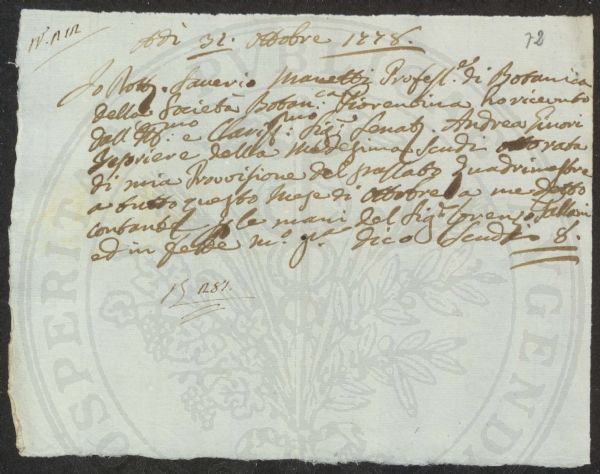 Adì 31. Ottobre 1778.
72
Io Dott. Saverio Manetti Profess.re di Botanica
della Società Botan.ca Fiorentina ho ricevuto
dall' Ill.mo e Clariss.mo Sig. Senat. Andrea Ginori
Tesoriere della Medesima Scudi otto rata
di mia Provvisione del passato Quadrimestre
a tutto questo Mese di Ottobre a me detto
contanti p. le mani del Sig. Lorenzo
ed in fede m.o p.a dico Scudi 8.
PROSPERITATI AUGENDAE